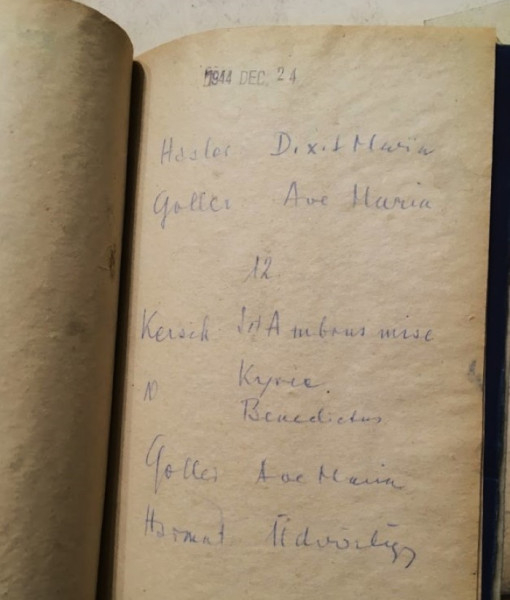 1944 DEC. 24
Hasler Dixit Maria
Goller Ave Maria
12
Kersch Ambrus mise
10
Kyrie
Benedictus
Goller Ave Maria
Harmat Üdvözlégy